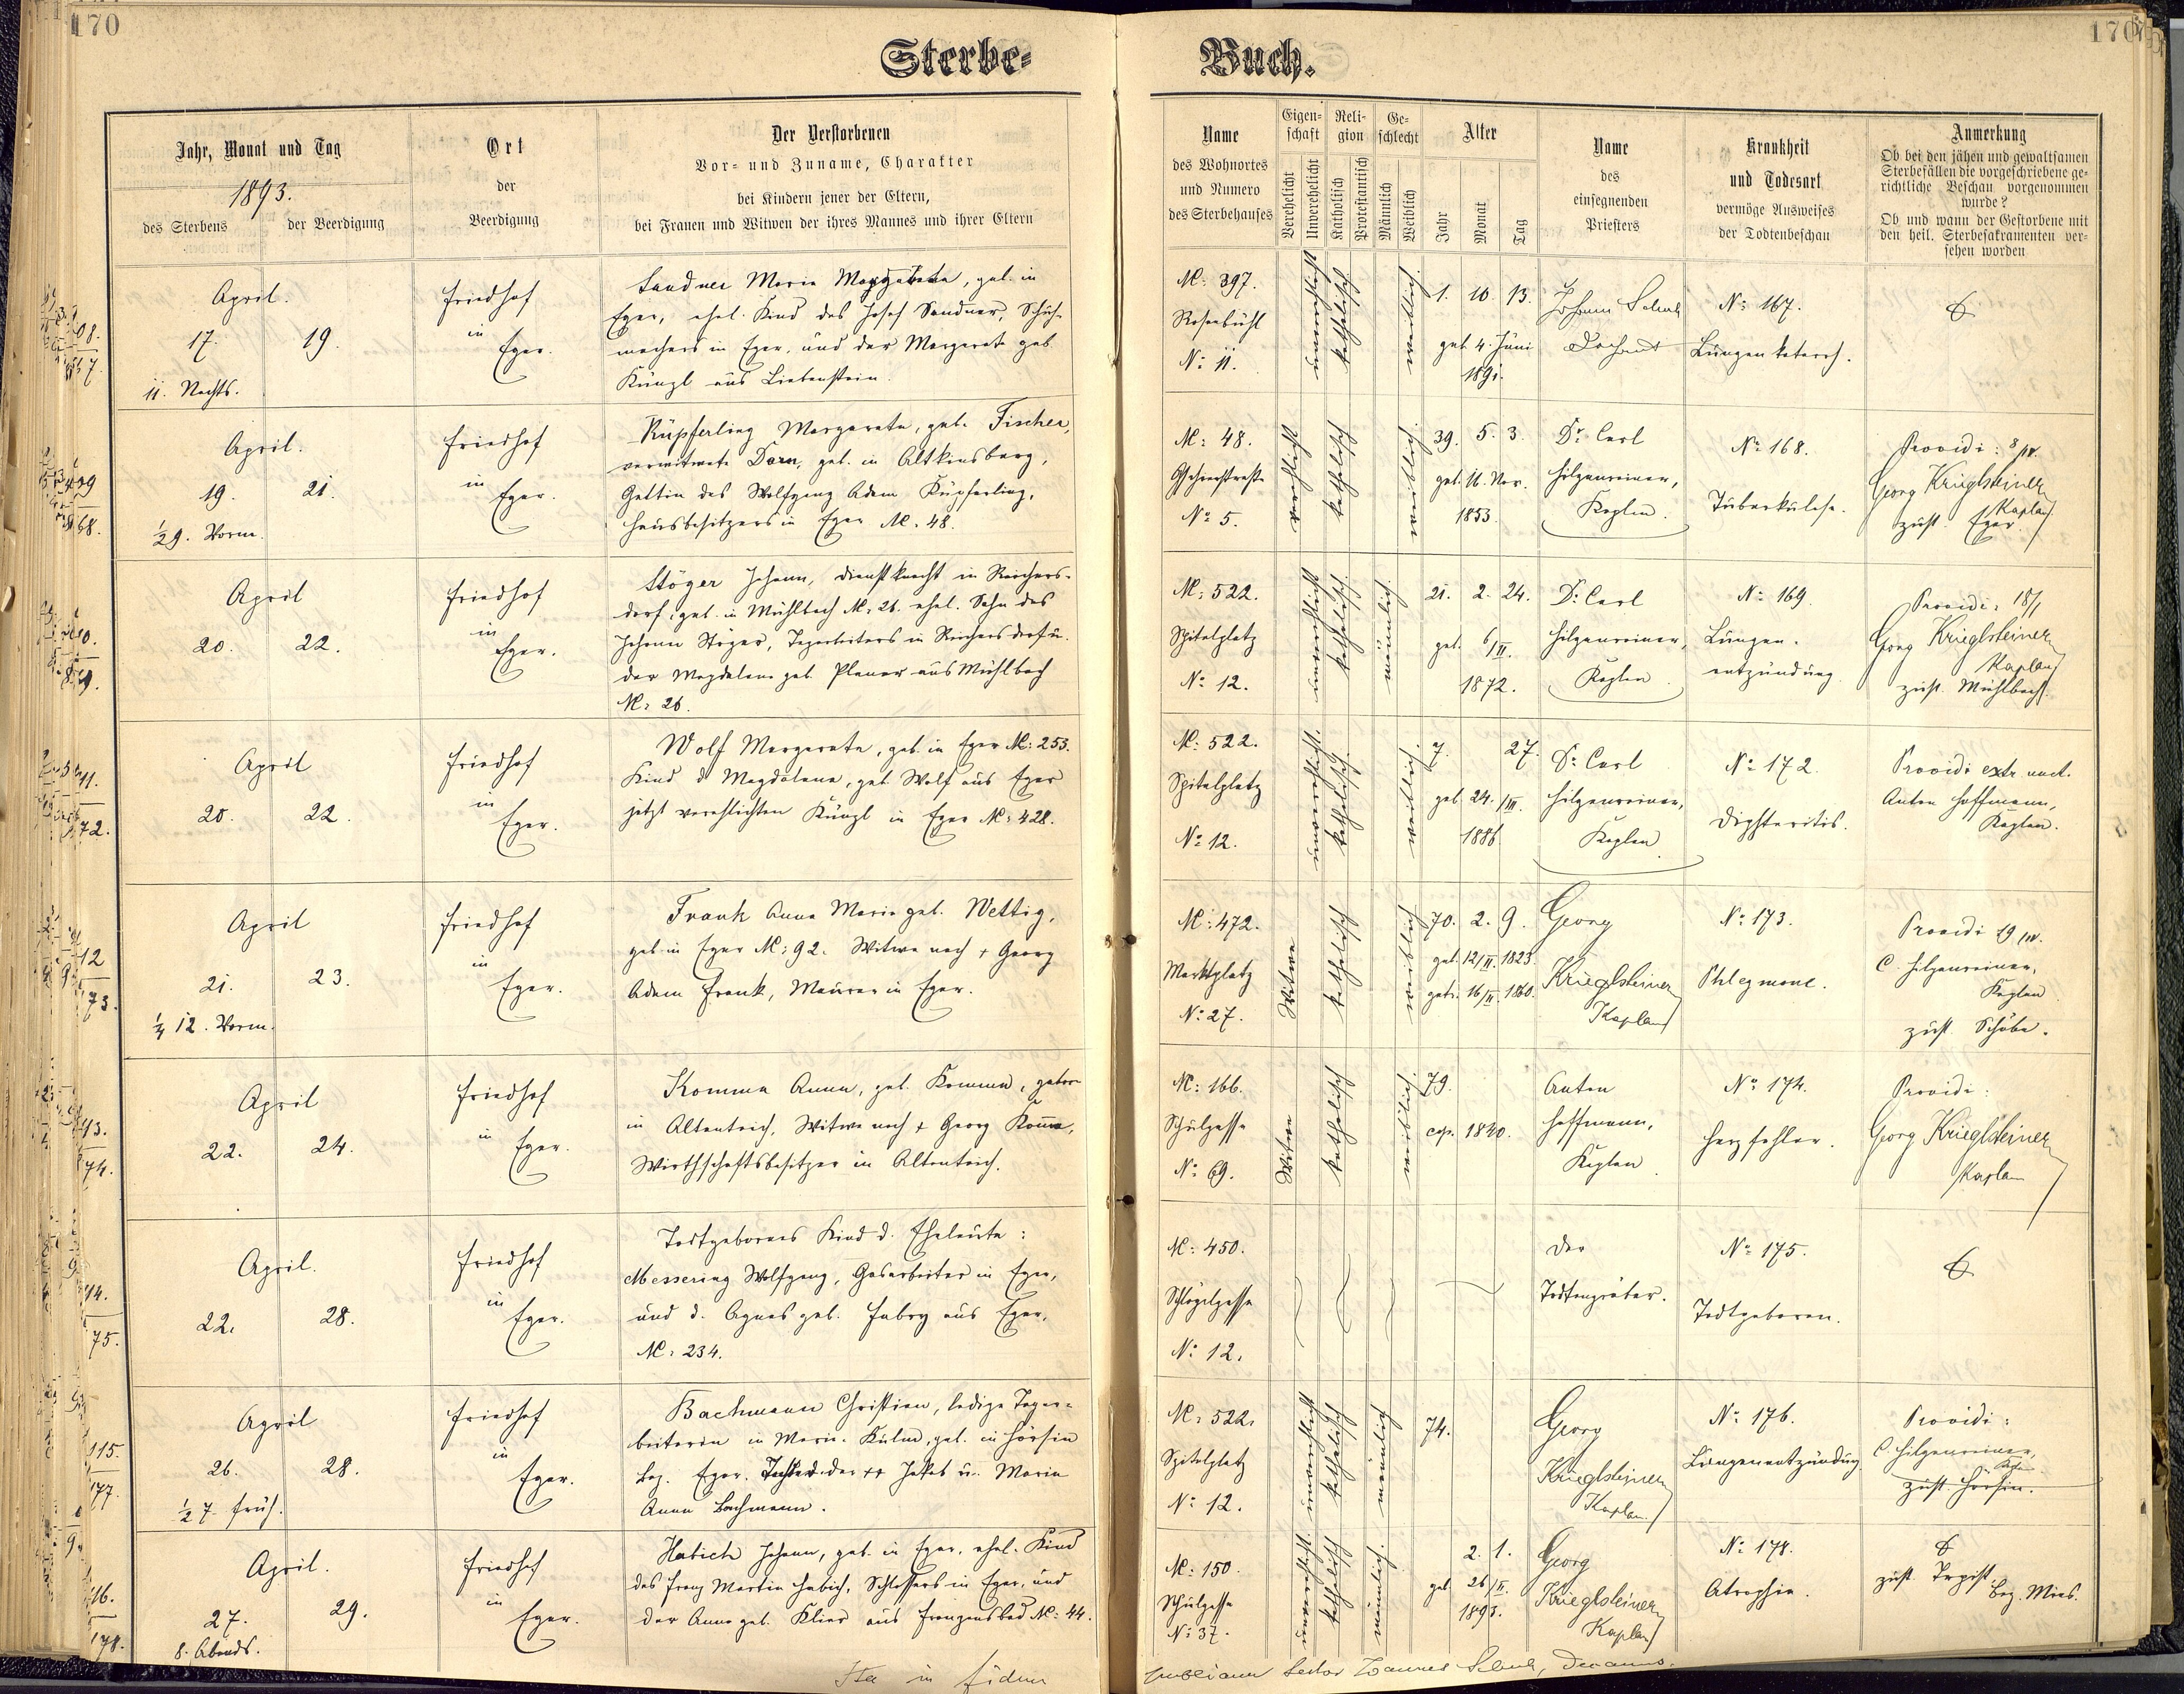 170
170
Sterbe-
Buch.
Jahr, Monat und Tag
1893.
des Sterbens
der Beerdigung
Ort
der
Beerdigung
Der Verstorbenen
Vor- und Zuname, Charakter
bei Kindern jener der Eltern,
bei Frauen und Witwen der ihres Mannes und ihrer Eltern
Name
des Wohnortes
und Numero
des Sterbehauses
Eigen-
schaft
Verehelicht
Unverehelicht
Reli-
gion
Katholisch
Protestantisch
Ge-
schlecht
Männlich
Weiblich
Alter
Jahr
Monat
Tag
Name
des
einsegnenden
Priesters
Krankheit
und Todesart
vermöge Ausweises
der Todtenbeschau
Anmerkung
Ob bei den jähen und gewaltsamen
Sterbefällen die vorgeschriebene ge-
richtliche Beschau vorgenommen
wurde?
Ob und wann der Gestorbene mit
den heil. Sterbesakramenten ver-
sehen worden
April.
17.
19.
11. Nachts.
Friedhof
in
Eger.
Sandner Maria Margareta, geb. in
Eger, ehel. Kind des Josef Sandner, Schuh-
machers in Eger, und der Margareta geb.
Künzl aus Liebenstein.
N: 397.
Rosenbühl
No 11.
unverehelicht
katholisch
weiblich
1. 10. 13.
geb. 4. Juni
1891.
Johann
Dechant
No 167.
Lungenkatarrh.
April.
19.
21.
1/2 9. Vorm.
Friedhof
in
Eger.
Küpferling Margareta, geb. Fischer,
verwitwete Dorn, geb. in Altkinsberg,
Gattin des Wolfgang Adam Küpferling,
Hausbesitzers in Eger N. 48.
N: 48.
No 5.
verehelicht
katholisch
weiblich
39. 5. 3.
geb. 16. Nov.
1853.
Dr. Carl
Hilgenreiner,
Kaplan.
No 168.
Tuberkulose.
Providi: 8/IV.
Georg Krieglsteiner
Kaplan
zust. Eger.
April
20.
22.
Friedhof
in
Eger.
Stöger Johann, Dienstknecht in Reichers-
dorf, geb. in Mühlbach N: 26. ehel. Sohn des
Johann Stöger, Tagarbeiters in Reichersdorf u.
der Magdalena geb. Planer aus Mühlbach
N: 26.
N: 522.
Spitalplatz
No 12.
unverehelicht
katholisch
männlich
21. 2. 24.
geb. 6/II.
1872.
Dr. Carl
Hilgenreiner,
Kaplan.
No 169.
Lungen-
entzündung.
Providi: 18/
Georg Krieglsteiner
Kaplan
zust. Mühlbach.
April
20.
22.
Friedhof
in
Eger.
Wolf Margareta, geb. in Eger N: 253.
Kind d. Magdalena, geb. Wolf aus Eger
jetzt verehlichten Künzl in Eger N: 428.
N: 522.
Spitalplatz
No 12.
unverehelicht
katholisch
weiblich
7. 27.
geb. 24./III.
1886
Dr. Carl
Hilgenreiner,
Kaplan
No 172.
Diphteritis.
Providi extr. unct.
Anton Hoffmann,
Kaplan.
April
21.
23.
1/4 12. Vorm.
Friedhof
in
Eger.
Frank Anna Maria geb. Wettig,
geb. in Eger N: 92. Witwe nach + Georg
Adam Frank, Maurer in Eger.
N: 472.
Marktplatz
No 27.
Witwe
katholisch
weiblich
70. 2. 9.
geb. 12/II. 1823.
getr. 16/II. 1860.
Georg
Krieglsteiner
Kaplan
No 173.
Phlegmone.
Providi 19/IV.
C. Hilgenreiner,
Kaplan
zust. Schöba.
April
22.
24.
Friedhof
in
Eger.
Komma Anna, geb. Komma, geboren
in Altenteich, Witwe nach + Georg Koma,
Wirthschaftsbesitzer in Altenteich.
N: 166.
Schulgasse
No 69.
Witwe
katholisch
weiblich
79.
cop. 1840.
Anton
Hoffmann,
Kaplan.
No 174.
Herzfehler.
Providi:
Georg Krieglsteiner
Kaplan
April.
22.
28.
Friedhof
in
Eger.
Todtgebornes Kind d. Eheleute:
Messering Wolfgang, Gasarbeiter in Eger,
und d. Agnes geb. Fabry aus Eger,
N: 234.
N: 450.
Schlögelgasse
No 12.
Der
Todtengräber.
No 175.
Todtgeboren.
April
26.
28.
1/2 7 früh.
Friedhof
in
Eger.
Bachmann Christian, ledige Tagar-
beiterin in Maria-Kulm, geb. in Hörsin
Bez. Eger. Tochter der ++ Jakob u. Maria
Anna Bachmann.
N: 522.
Spitalplatz
No 12.
unverehelicht
katholisch
männlich
74.
Georg
Krieglsteiner
Kaplan.
No 176.
Lungenentzündung.
Providi:
C. Hilgenreiner,
zust. Hörsin.
April.
27.
29.
8. Abends.
Friedhof
in
Eger.
Habich Johann, geb. in Eger, ehel. Kind
des Franz Martin Habich, Schlossers in Eger, und
der Anna geb. Klier aus Franzensbad N: 44.
N: 150.
Schulgasse
No 37.
unverehelicht
katholisch
männlich
2. 1.
geb. 26/II.
1893.
Georg
Krieglsteiner
Kaplan
No 178.
Atrophia.
zust.
Bez. Mies.
Ita in fidem